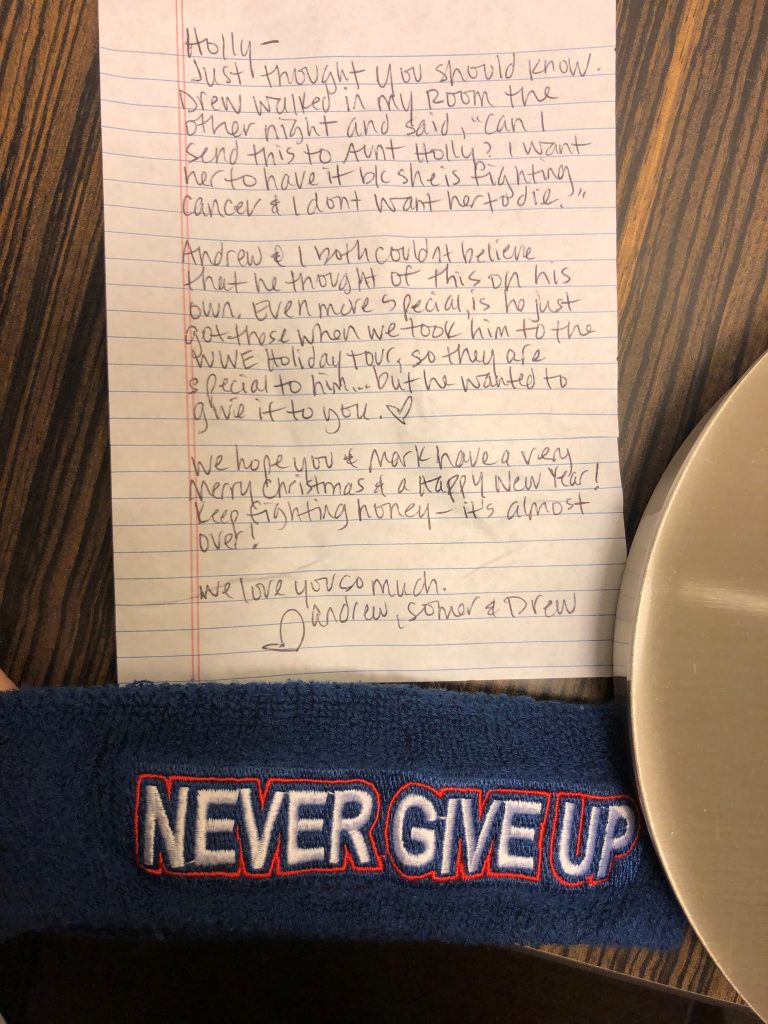 Holly -
Just thought you should know.
Drew walked in my room the
other night and said, "Can I
send this to Aunt Holly? I want
her to have it b/c she is fighting
cancer & I dont want her to die."
Andrew & I both couldnt believe
that he thought of this on his
own. Even more special, is he just
got those when we took him to the
WWE Holiday tour, so they are
special to him... but he wanted to
give it to you. ♡
We hope you & Mark have a very
Merry Christmas & a Happy New Year!
Keep fighting honey - it's almost
over!
We love you so much.
Andrew, Somer & Drew
NEVER GIVE UP